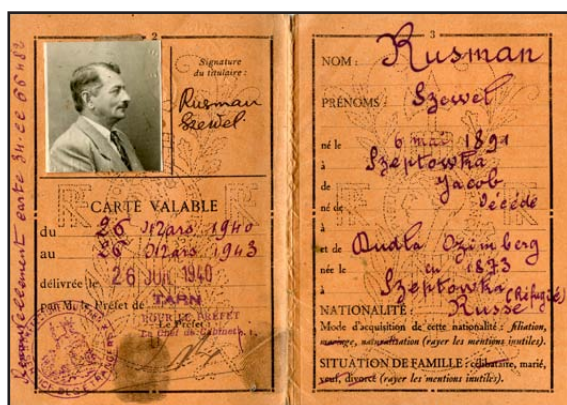 2
Renouvellement carte SH. CE 66482
Signature
du titulaire :
Rusman
Szewel.
CARTE VALABLE
du 26 Mars 1940
au 26 Mars 1943
délivrée le 26 JUN 1940
par M. le Préfet de TARN
POUR LE PREFET
Le Préfet
Le Chef de Cabinet
3
NOM : Rusman
PRÉNOMS : Szewel
né le 6 mai 1891
à Szeptowka
de Jacob
né le décédé
à
et de Dudla Ozimberg
née le en 1873
à Szeptowka
NATIONALITÉ : Russe (Réfugié)
Mode d'acquisition de cette nationalité : filiation,
mariage, naturalisation (rayer les mentions inutiles).
SITUATION DE FAMILLE : célibataire, marié,
veuf, divorcé (rayer les mentions inutiles).